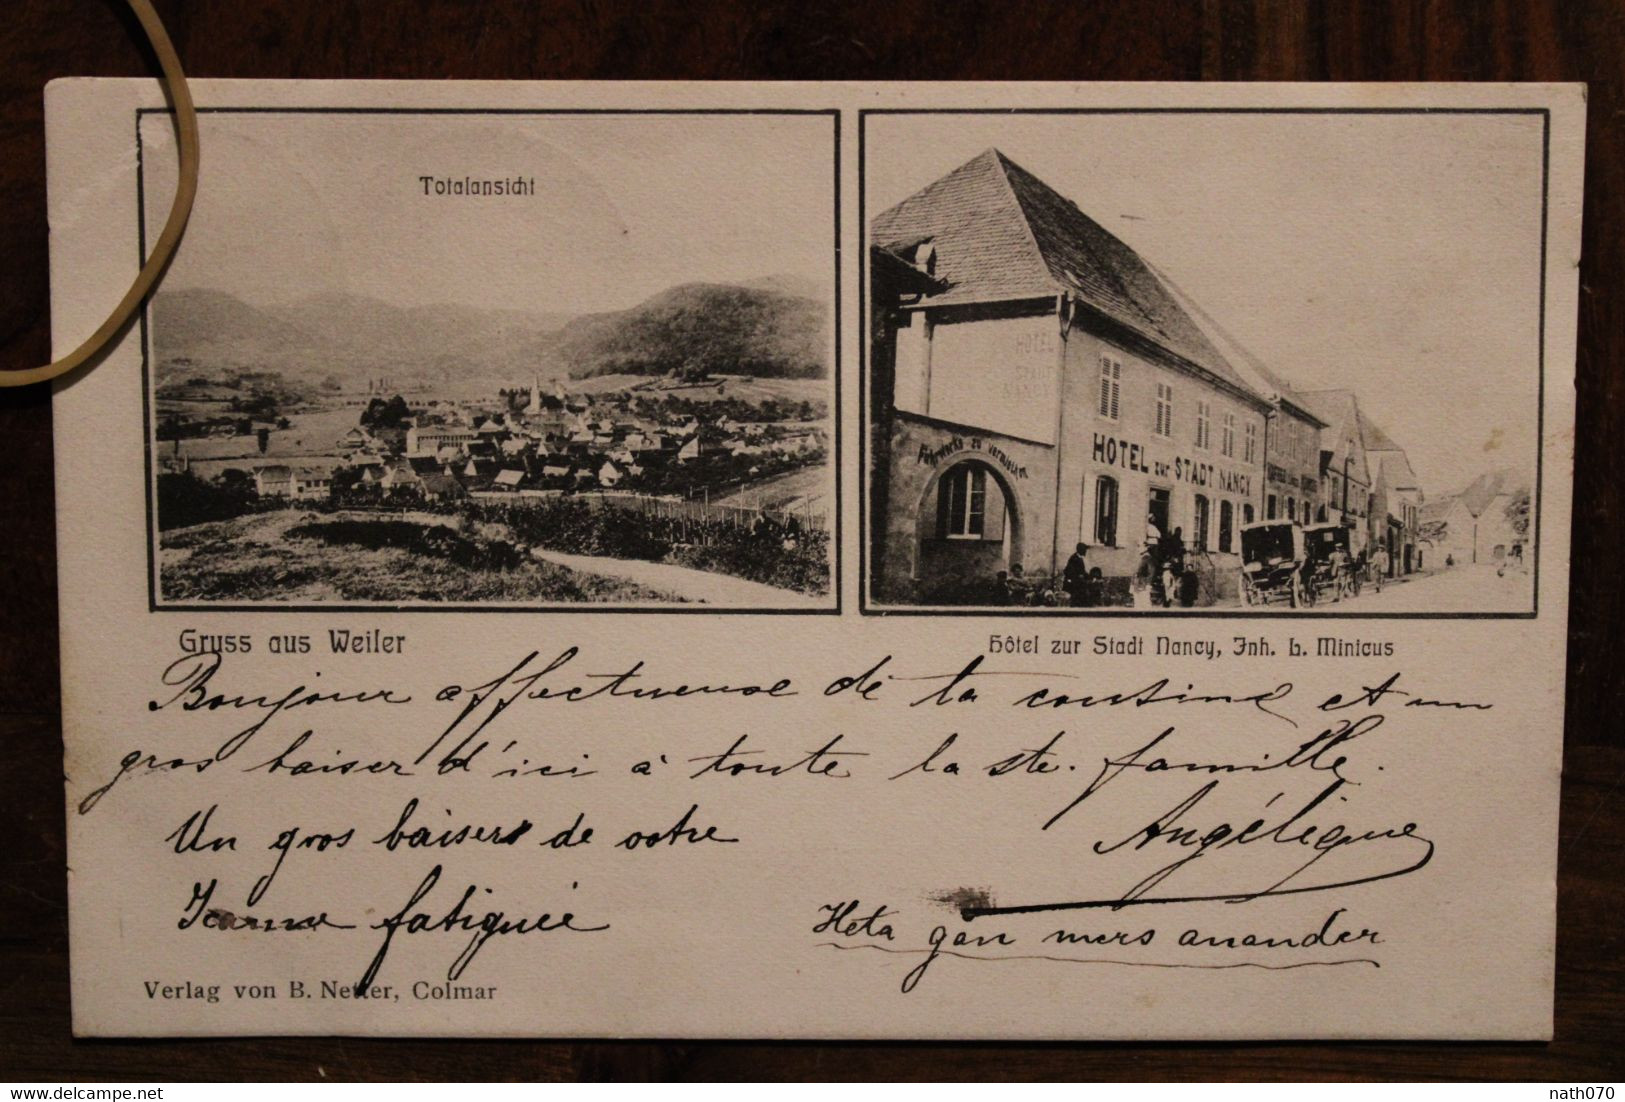 Totalansicht
HOTEL
Fuhrwerke zu vermiethen
HOTEL zur STADT NANCY
Gruss aus Weiler
Hôtel zur Stadt Nancy, Inh. L. Minicus
Bonjour affectueuse de ta cousine et un
gros baiser d'ici à toute la ste. famille.
Angélique
Un gros baiser de votre
Jeanne fatiguée
Heta gan mers anander
Verlag von B. Netter, Colmar
nath070